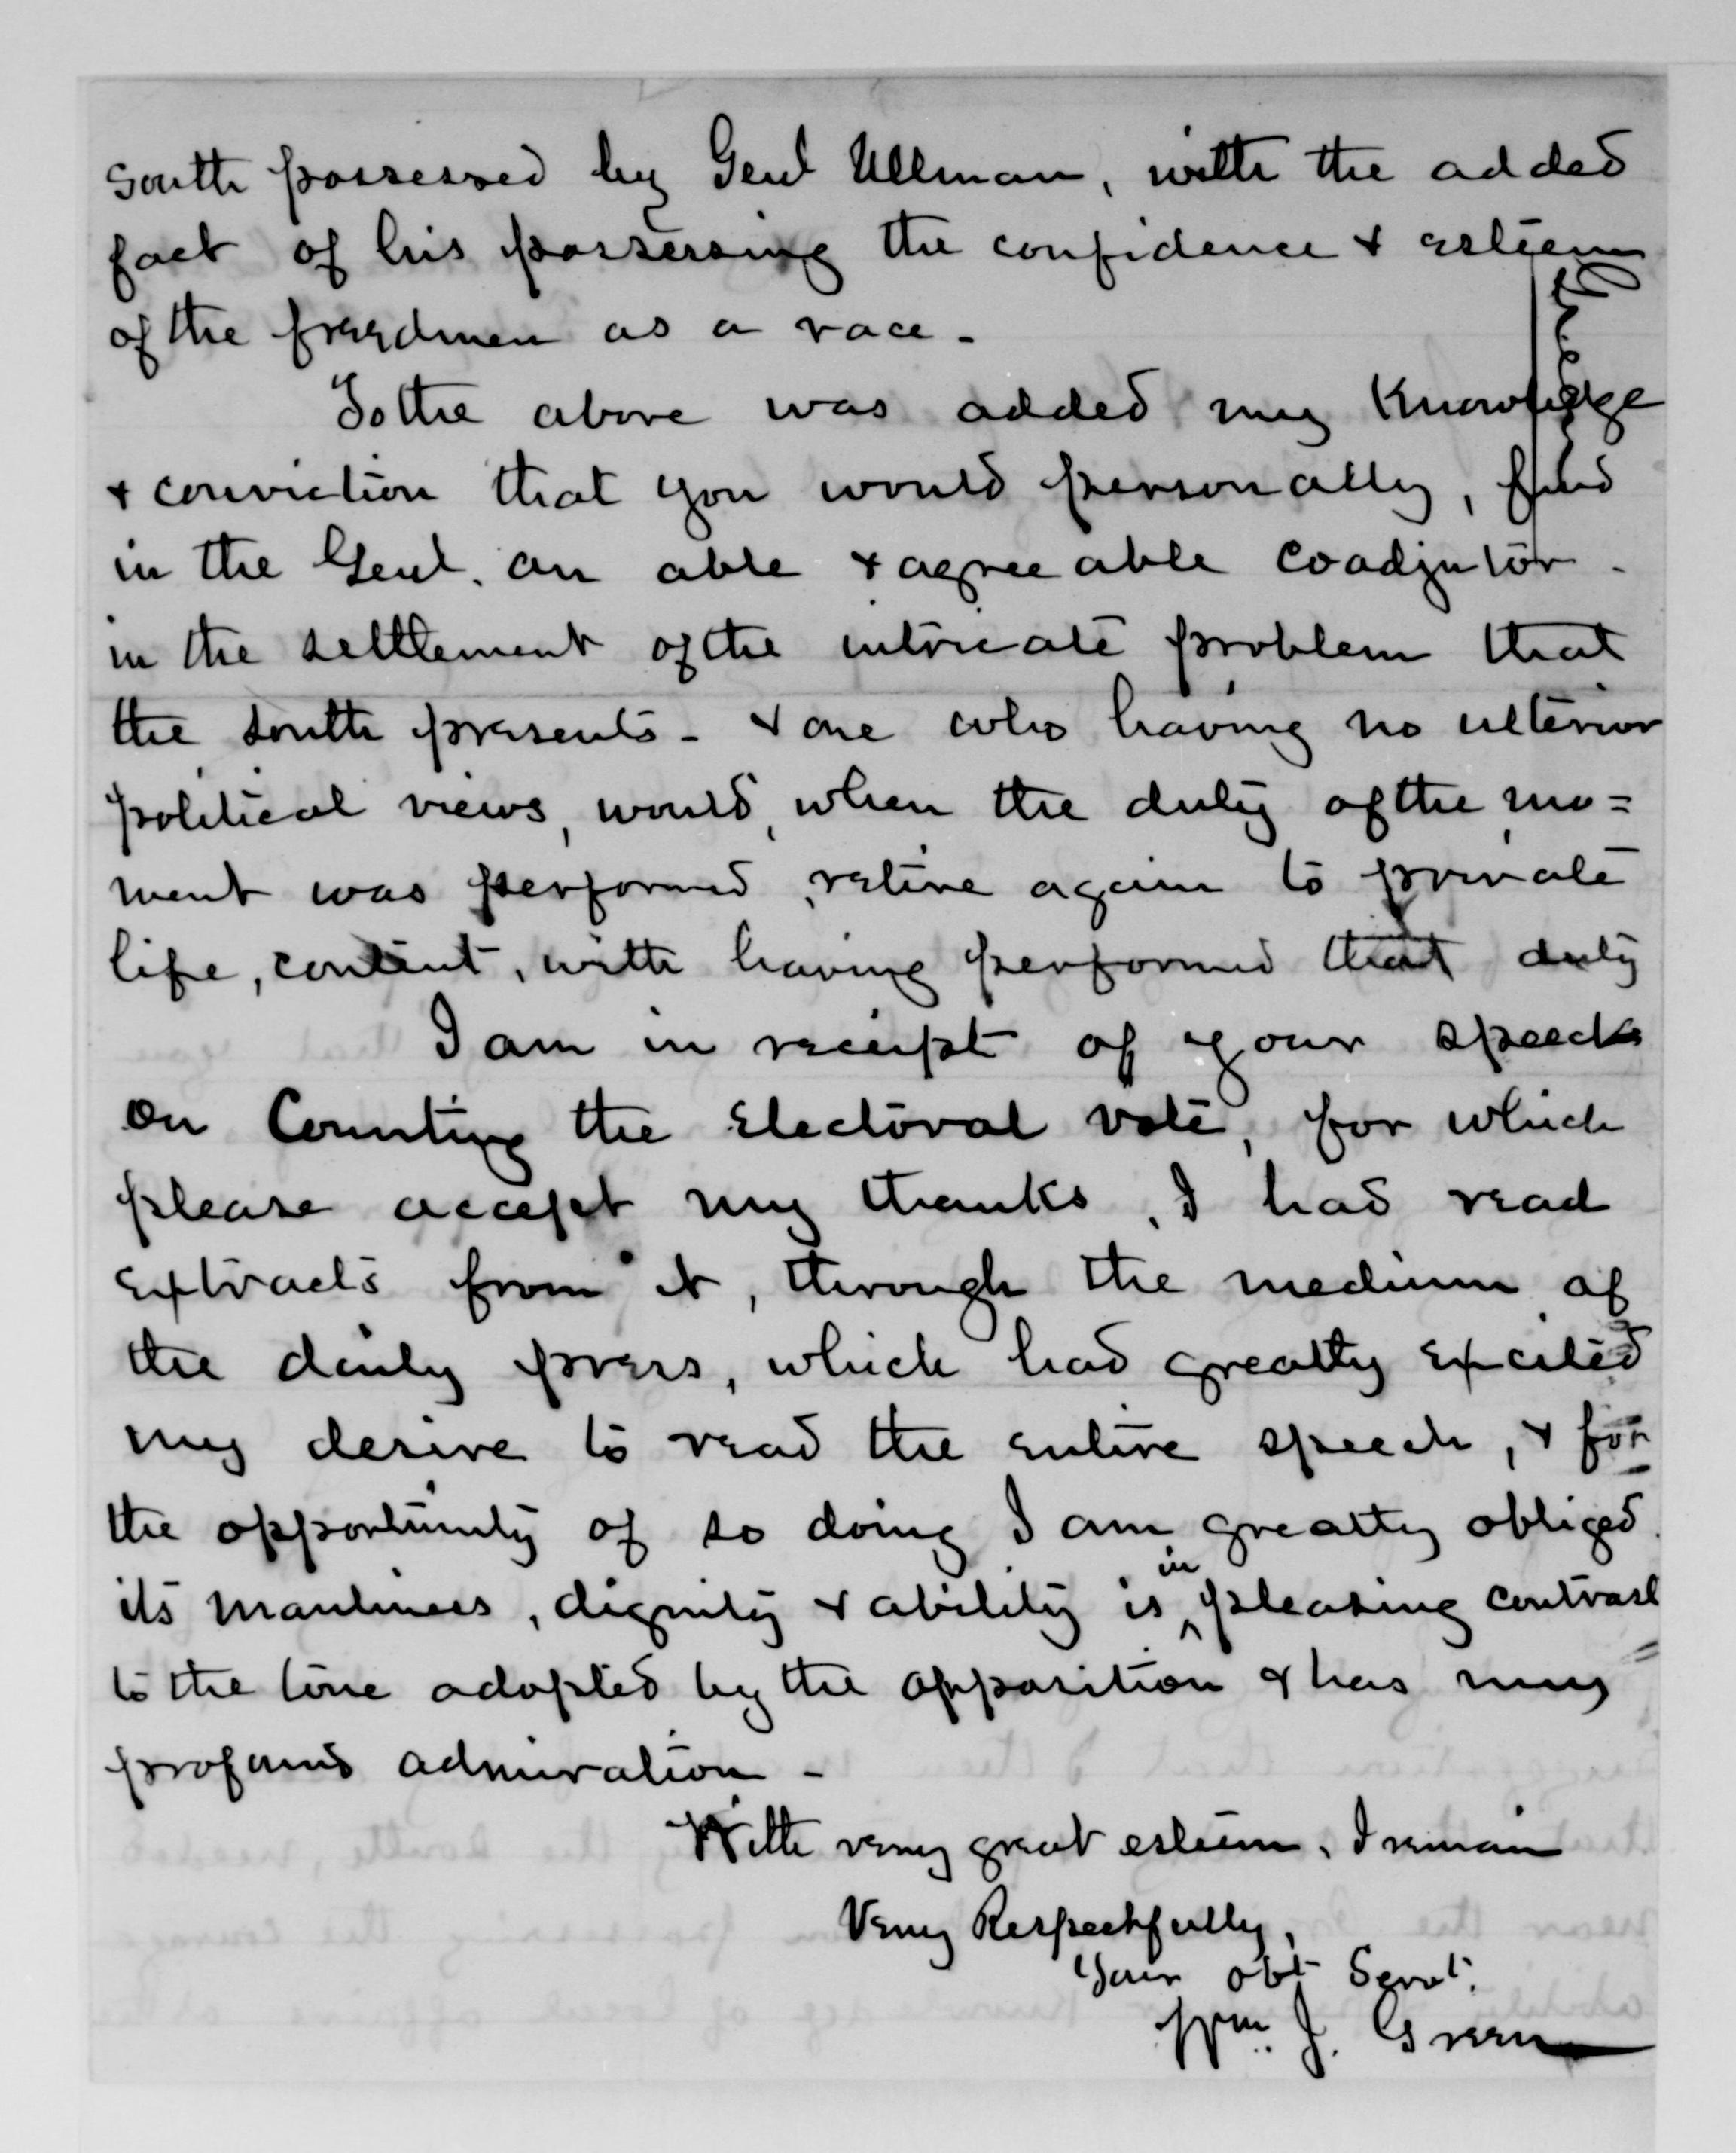 south possessed by Genl Ullman, with the added
fact of his possessing the confidence & esteem
of the freedmen as a race -
To the above was added my Knowledge
& conviction that you would personally, find
in the Genl. an able & agreeable coadjutor -
in the settlement of the intricate problem that
the south presents - & one who having no ulterior
political views, would, when the duty of the mo=
ment was performed, retire again to private
life, content, with having performed that duty
I am in receipt of your speech
on Counting the Electoral vote, for which
please accept my thanks, I had read
extracts from it, through the medium of
the daily press, which had greatly excited
my desire to read the entire speech, & for
the opportunity of so doing I am greatly obliged.
its manliness, dignity & ability is in pleasing contrast
to the tone adopted by the opposition & has my
profound admiration -
With very great esteem, I remain
Very Respectfully,
Your obt Servt.
Wm. J. Green